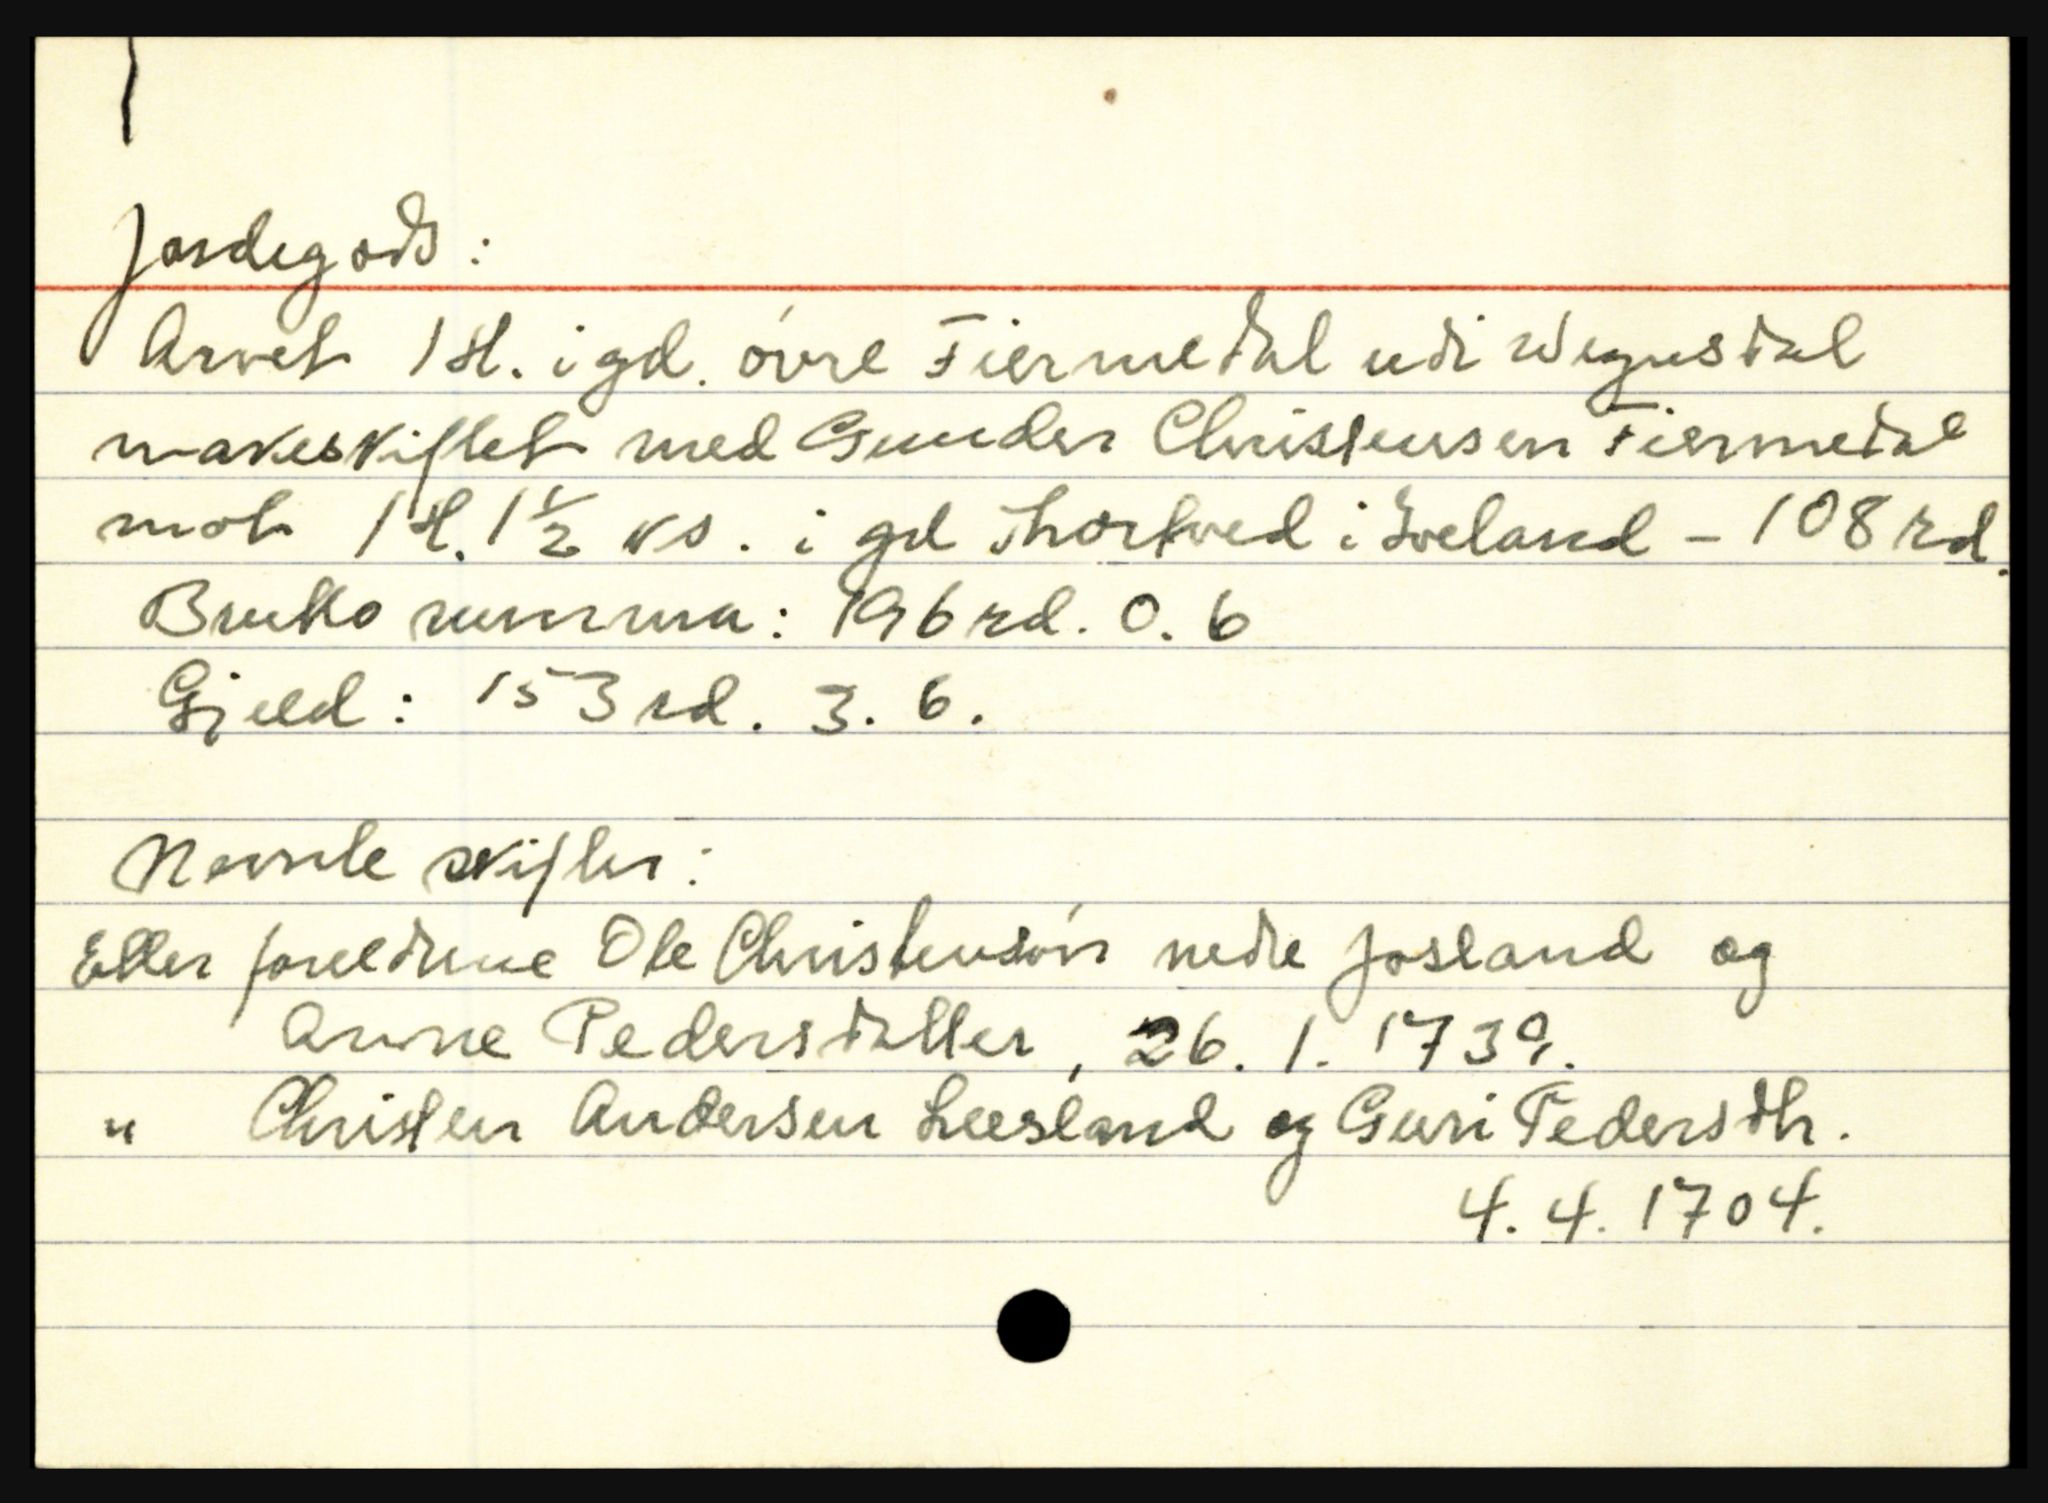 Jordegods:
Arvet 1 H. i gd. óvre Fiermedal udi Wegusdal
makeskiftet med Gunder Christensen Fiermedal
mot 1 H. 1½ ks. i gd Thortved i Iveland - 108 rd.
Brutto summa: 196 rd. 0. 6
Gjeld: 153 rd. 3. 6.
Nevnte skifter:
Etter foreldrene Ole Christensón nedre Josland og
Anne Pedersdatter, 26. 1. 1739.
" Christen Andersen Leesland og Guri Pedersdtr.
4. 4. 1704.